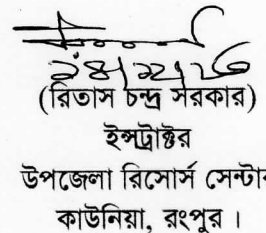 (রিতাস চন্দ্র সরকার)
ইন্সট্রাক্টর
উপজেলা রিসোর্স সেন্টার
কাউনিয়া, রংপুর ।